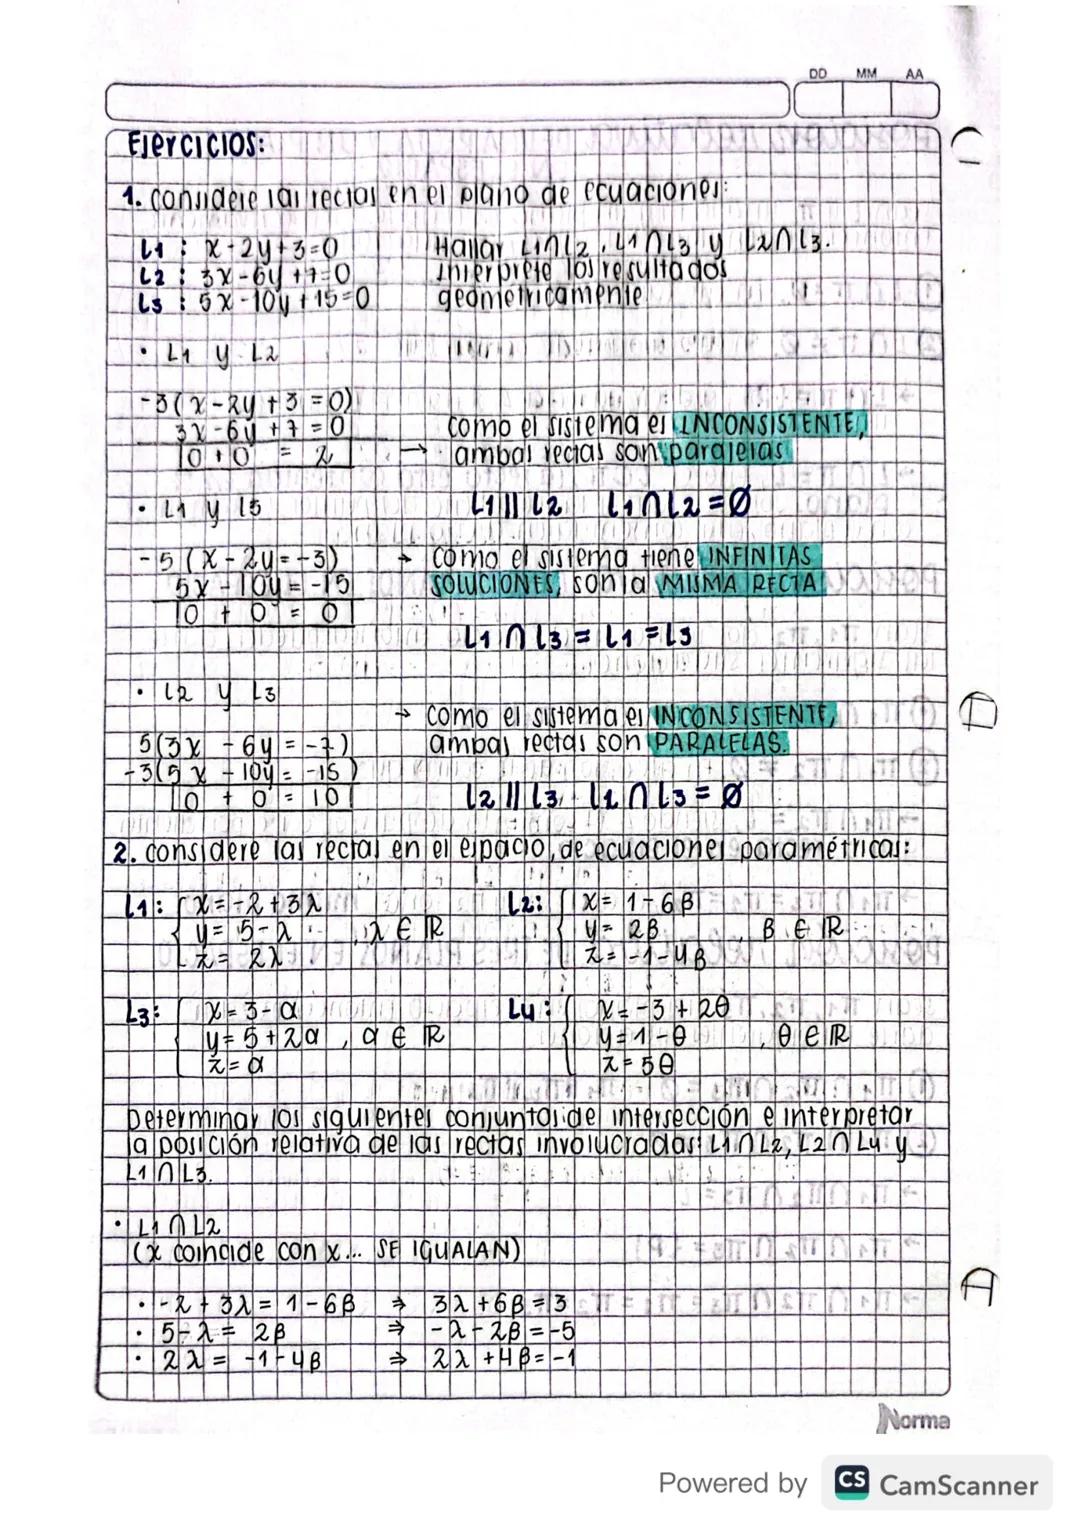 DD MM AA
Ejercicios:
1. Considere las rectas en el plano de ecuaciones:
L1 : x - 2y + 3 = 0 Hallar L1∩L2, L1∩L3 y L2∩L3.
L2 : 3x - 6y + 7 = 0 Interprete los resultados
L3 : 5x - 10y + 15 = 0 geométricamente.
• L1 y L2
-3(x - 2y + 3 = 0)
3x - 6y + 7 = 0 Como el sistema es INCONSISTENTE,
0 + 0 = 2 → ambas rectas son paralelas
• L1 y L3 L1 || L2 L1∩L2 = Ø
-5(x - 2y = -3) → Como el sistema tiene INFINITAS
5x - 10y = -15 SOLUCIONES, son la MISMA RECTA
0 + 0 = 0
L1 ∩ L3 = L1 = L3
• L2 y L3
→ Como el sistema es INCONSISTENTE,
5(3x - 6y = -7) ambas rectas son PARALELAS.
-3(5x - 10y = -15)
0 + 0 = 10 L2 || L3 L2 ∩ L3 = Ø
2. Considere las rectas en el espacio, de ecuaciones paramétricas:
L1: { x = -2 + 3λ L2: { x = 1 - 6β
y = 5 - λ , λ ∈ ℝ y = 2β , β ∈ ℝ
z = 2λ z = -1 - 4β
L3: { x = 3 - α L4: { x = -3 + 2θ
y = 5 + 2α , α ∈ ℝ y = 1 - θ , θ ∈ ℝ
z = α z = 5θ
Determinar los siguientes conjuntos de intersección e interpretar
la posición relativa de las rectas involucradas: L1∩L2, L2∩L4 y
L1∩L3.
• L1∩L2
(x coincide con x... SE IGUALAN)
• -2 + 3λ = 1 - 6β ⇒ 3λ + 6β = 3
• 5 - λ = 2β ⇒ -λ - 2β = -5
• 2λ = -1 - 4β ⇒ 2λ + 4β = -1
Norma
Powered by CS CamScanner